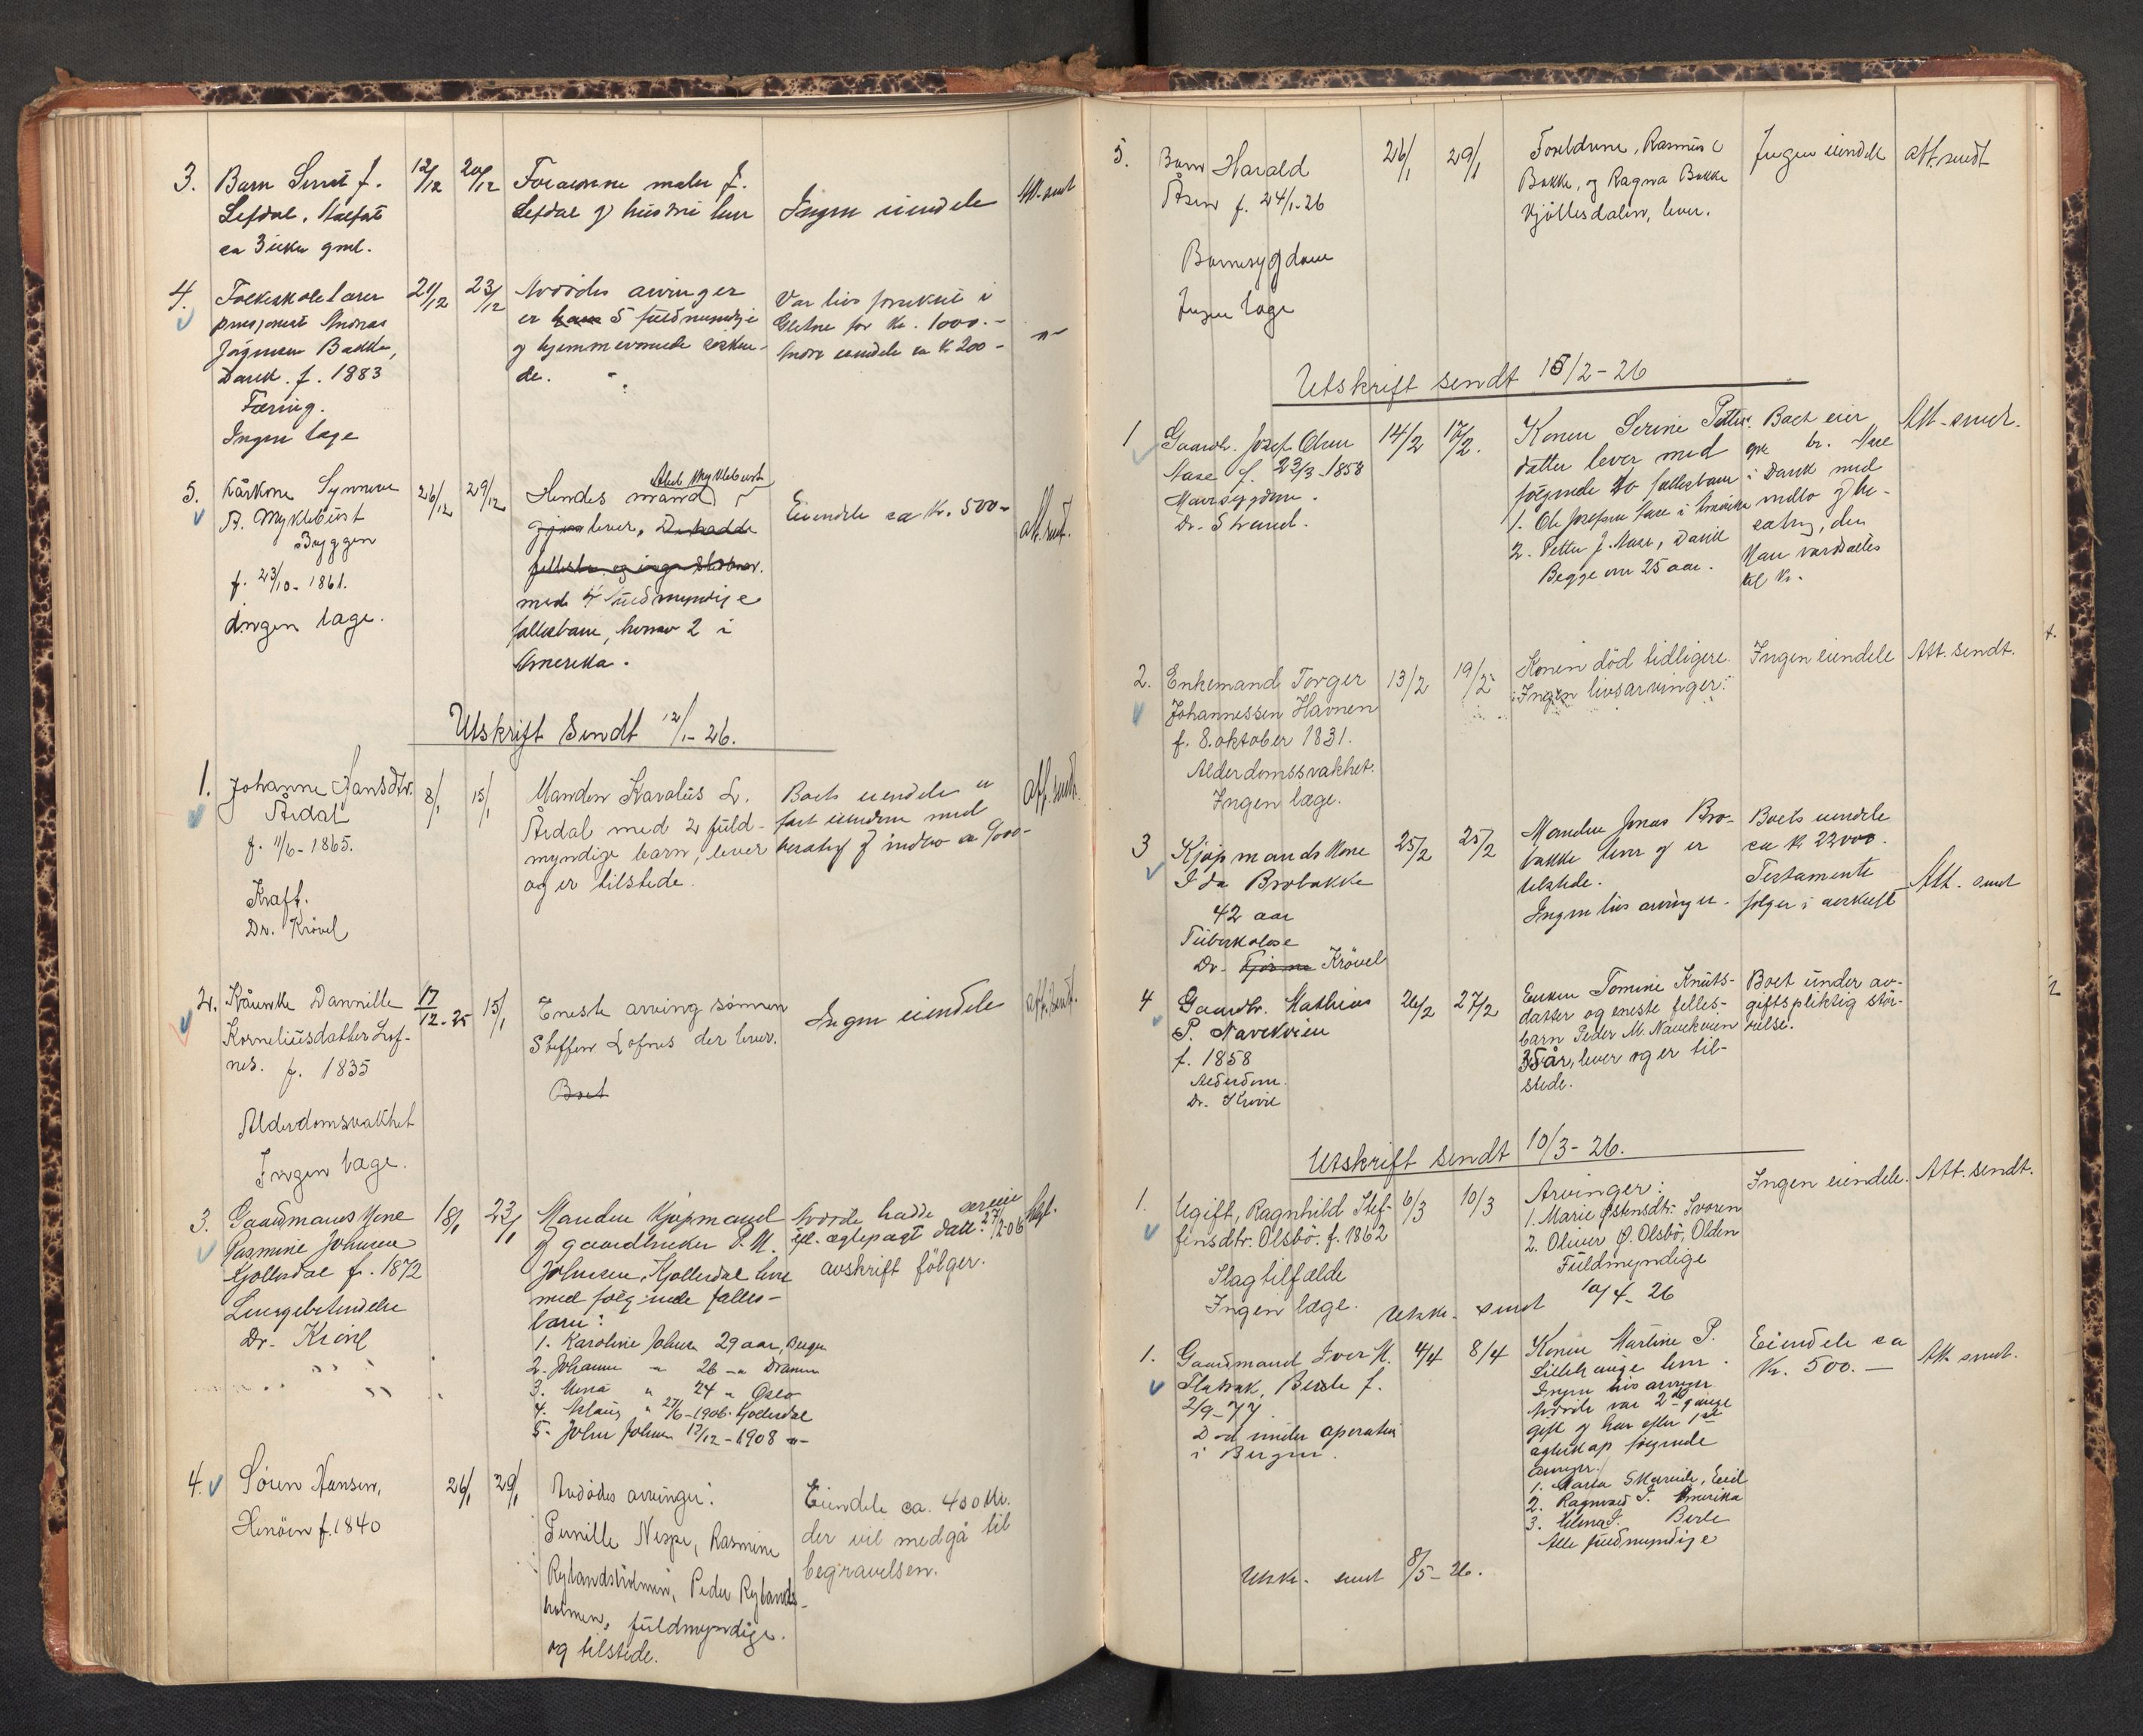 3. Barn Serine J. 12/12 20/12 Forældrene maler J. Ingen eiendele Att. sendt
Lefdal, Maløy Lefdal og hustru lever
ca 3 uker gml.
4. Folkeskolelærer 21/12 23/12 Avdødes arvinger Var livs forsikret i
pensjonert Andreas er 5 fuldmyndige for kr. 1000.-
Jørgensen Bakke, og hjemmeværende søsken- Andre eiendele ca kr 200-
Davik. f. 1883 de.
Tæring.
Ingen læge
5. Kårkone Synneve 26/12 29/12 Hendes mand Abel Myklebust Eiendele ca kr. 500- Att. sendt.
A. Myklebust lever, De hadde
Bryggen fellesbarn og ingen
f. 23/10-1861. med 7 fuldmyndige
Ingen læge. fællesbarn, hvorav 2 i
Amerika.
Utskrift Sendt 12/1-26.
1. Johanne Hansdtr. 8/1 15/1 Manden Karolus L. Boets eiendele er Att. sendt.
Årdal Årdal med 2 fuld- fast eiendom med
f. 11/6-1865. myndige barn, lever besætn. og indbo ca 9000-
og er tilstede.
Kræft.
Dr. Krövel
2. Kårenke Dannille 17/12-25 15/1 Eneste arving sönnen Ingen eiendele Att. sendt.
Korneliusdatter Lof- Steffen Lofnes der lever.
nes. f. 1835
Boet
Alderdomsvakhet
Ingen læge.
3. Gaardmands kone 18/1 23/1 Manden Kjøpmand Avdøde hadde særeie
Rasmine Johnsen og gaardbruker P. M. ifl. ægtepagt dat. 27/2-06
Kjøllesdal f. 1872 Johnsen, Kjøllesdal lever avskrift følger.
Lungebetændelse med følgende fælles-
Dr. Krövel barn:
1. Karoline Johnsen 29 aar, Bergen
2. Johanne " 26 -"- Drammen
3. Anna " 24 " Oslo
4. Klaus " 27/6-1906. Kjøllesdal
5. John Johnsen 12/12-1908 -"-
4. Sören Hansen, 26/1 29/1 Avdödes arvinger: Eiendele ca. 400 kr.
Henöen f. 1840 Pernille Nespe, Rasmine der vil medgå til
Rylandsholmen, Peder Rylands- begravelsen.
holmen, fuldmyndige
og tilstede.
5. Barn Harald 26/1 29/1 Foreldrene, Rasmus Ingen eiendele Att. sendt
Åsen f. 24/1-26 Bakke, og Ragna Bakke
Kjöllesdalen, lever.
Barnesygdom
Ingen læge
Utskrift sendt 15/2-26
1 Gaardbr. Josef Olsen 14/2 17/2. Konen Serine Petters- Boet eier Att. sendt.
Nave f. 23/3-1858 datter lever med br. Nave
Dr. Strand. følgende to fællesbarn i Davik med
1. Ole Josefsen Nave i Amerika indbo og be-
2. Petter J. Nave, Davik sætning, den
Begge over 25 aar. Kan værdsættes
til kr.
2. Enkemand Torger 13/2 19/2 Konen död tidligere. Ingen eiendele Att. sendt.
Johannessen Havnen Ingen livsarvinger.
f. 8. oktober 1831.
Alderdomssvakhet.
Ingen læge.
3 Kjøpmands kone 25/2 25/2 Manden Jonas Bro- Boets eiendele
Ida Brobakke bakke lever og er ca kr 22000.
42 aar tilstede. Testamente Att. sendt
Tuberkulose Ingen livs arvinger. følger i avskrift
Dr. Krövel
4 Gaardbr. Mathias 26/2 27/2 Enken Tomine Knuts- Boet under av-
P. Navekvien datter og eneste felles- giftspliktig stör-
f. 1858 barn Peder M. Navekvien relse.
Alderdom. 35 år, lever og er til-
Dr. Krövel stede.
Utskrift sendt 10/3-26.
1. Ugift, Ragnhild Stef- 6/3 10/3 Arvinger: Ingen eiendele. Att. sendt.
fensdtr. Olsbö. f. 1862 1. Marie Østensdtr. Svoren
2. Oliver Ø. Olsbö, Olden
Slagtilfælde Fuldmyndige
Ingen læge.
Utskr. sendt 10/4-26
1. Gaardmand Iver M. 4/4 8/4 Konen Martine P. Eiendele ca Att. sendt.
Berle f. Lillehauge lever. Kr. 500.—
2/9-77 Ingen livs arvinger
Död under operation Avdøde var 2 gange
i Bergen. gift og har efter 1ste
ægteskap følgende
arvinger.
1. Marta
2. Ragnvald I. Amerika
3. Helena I. Berle
Alle fuldmyndige
Utskr. sendt 8/5-26.